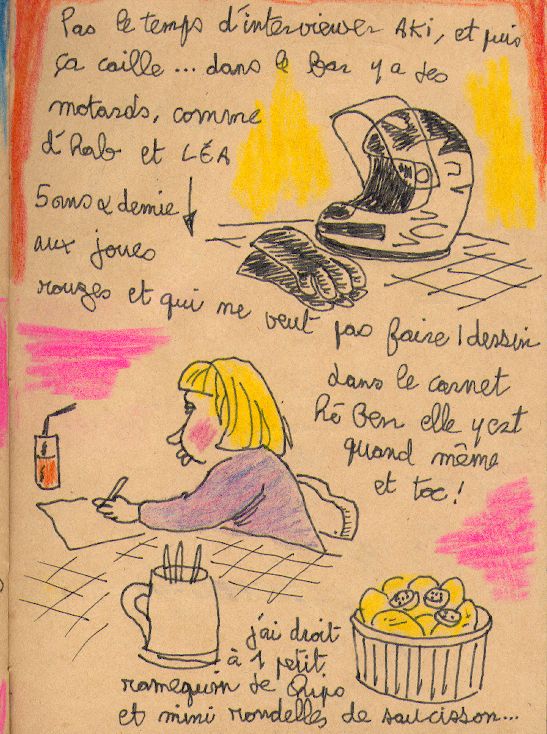 Pas le temps d'interviewer AKI, et puis
ça caille... dans le Bar y a des
motards, comme
d'hab et LÉA
5 ans & demie
aux joues
rouges et qui ne veut pas faire 1 dessin
dans le carnet
hé Ben elle y est
quand même
et toc !
j'ai droit
à 1 petit
ramequin de Chips
et mini rondelles de saucisson...